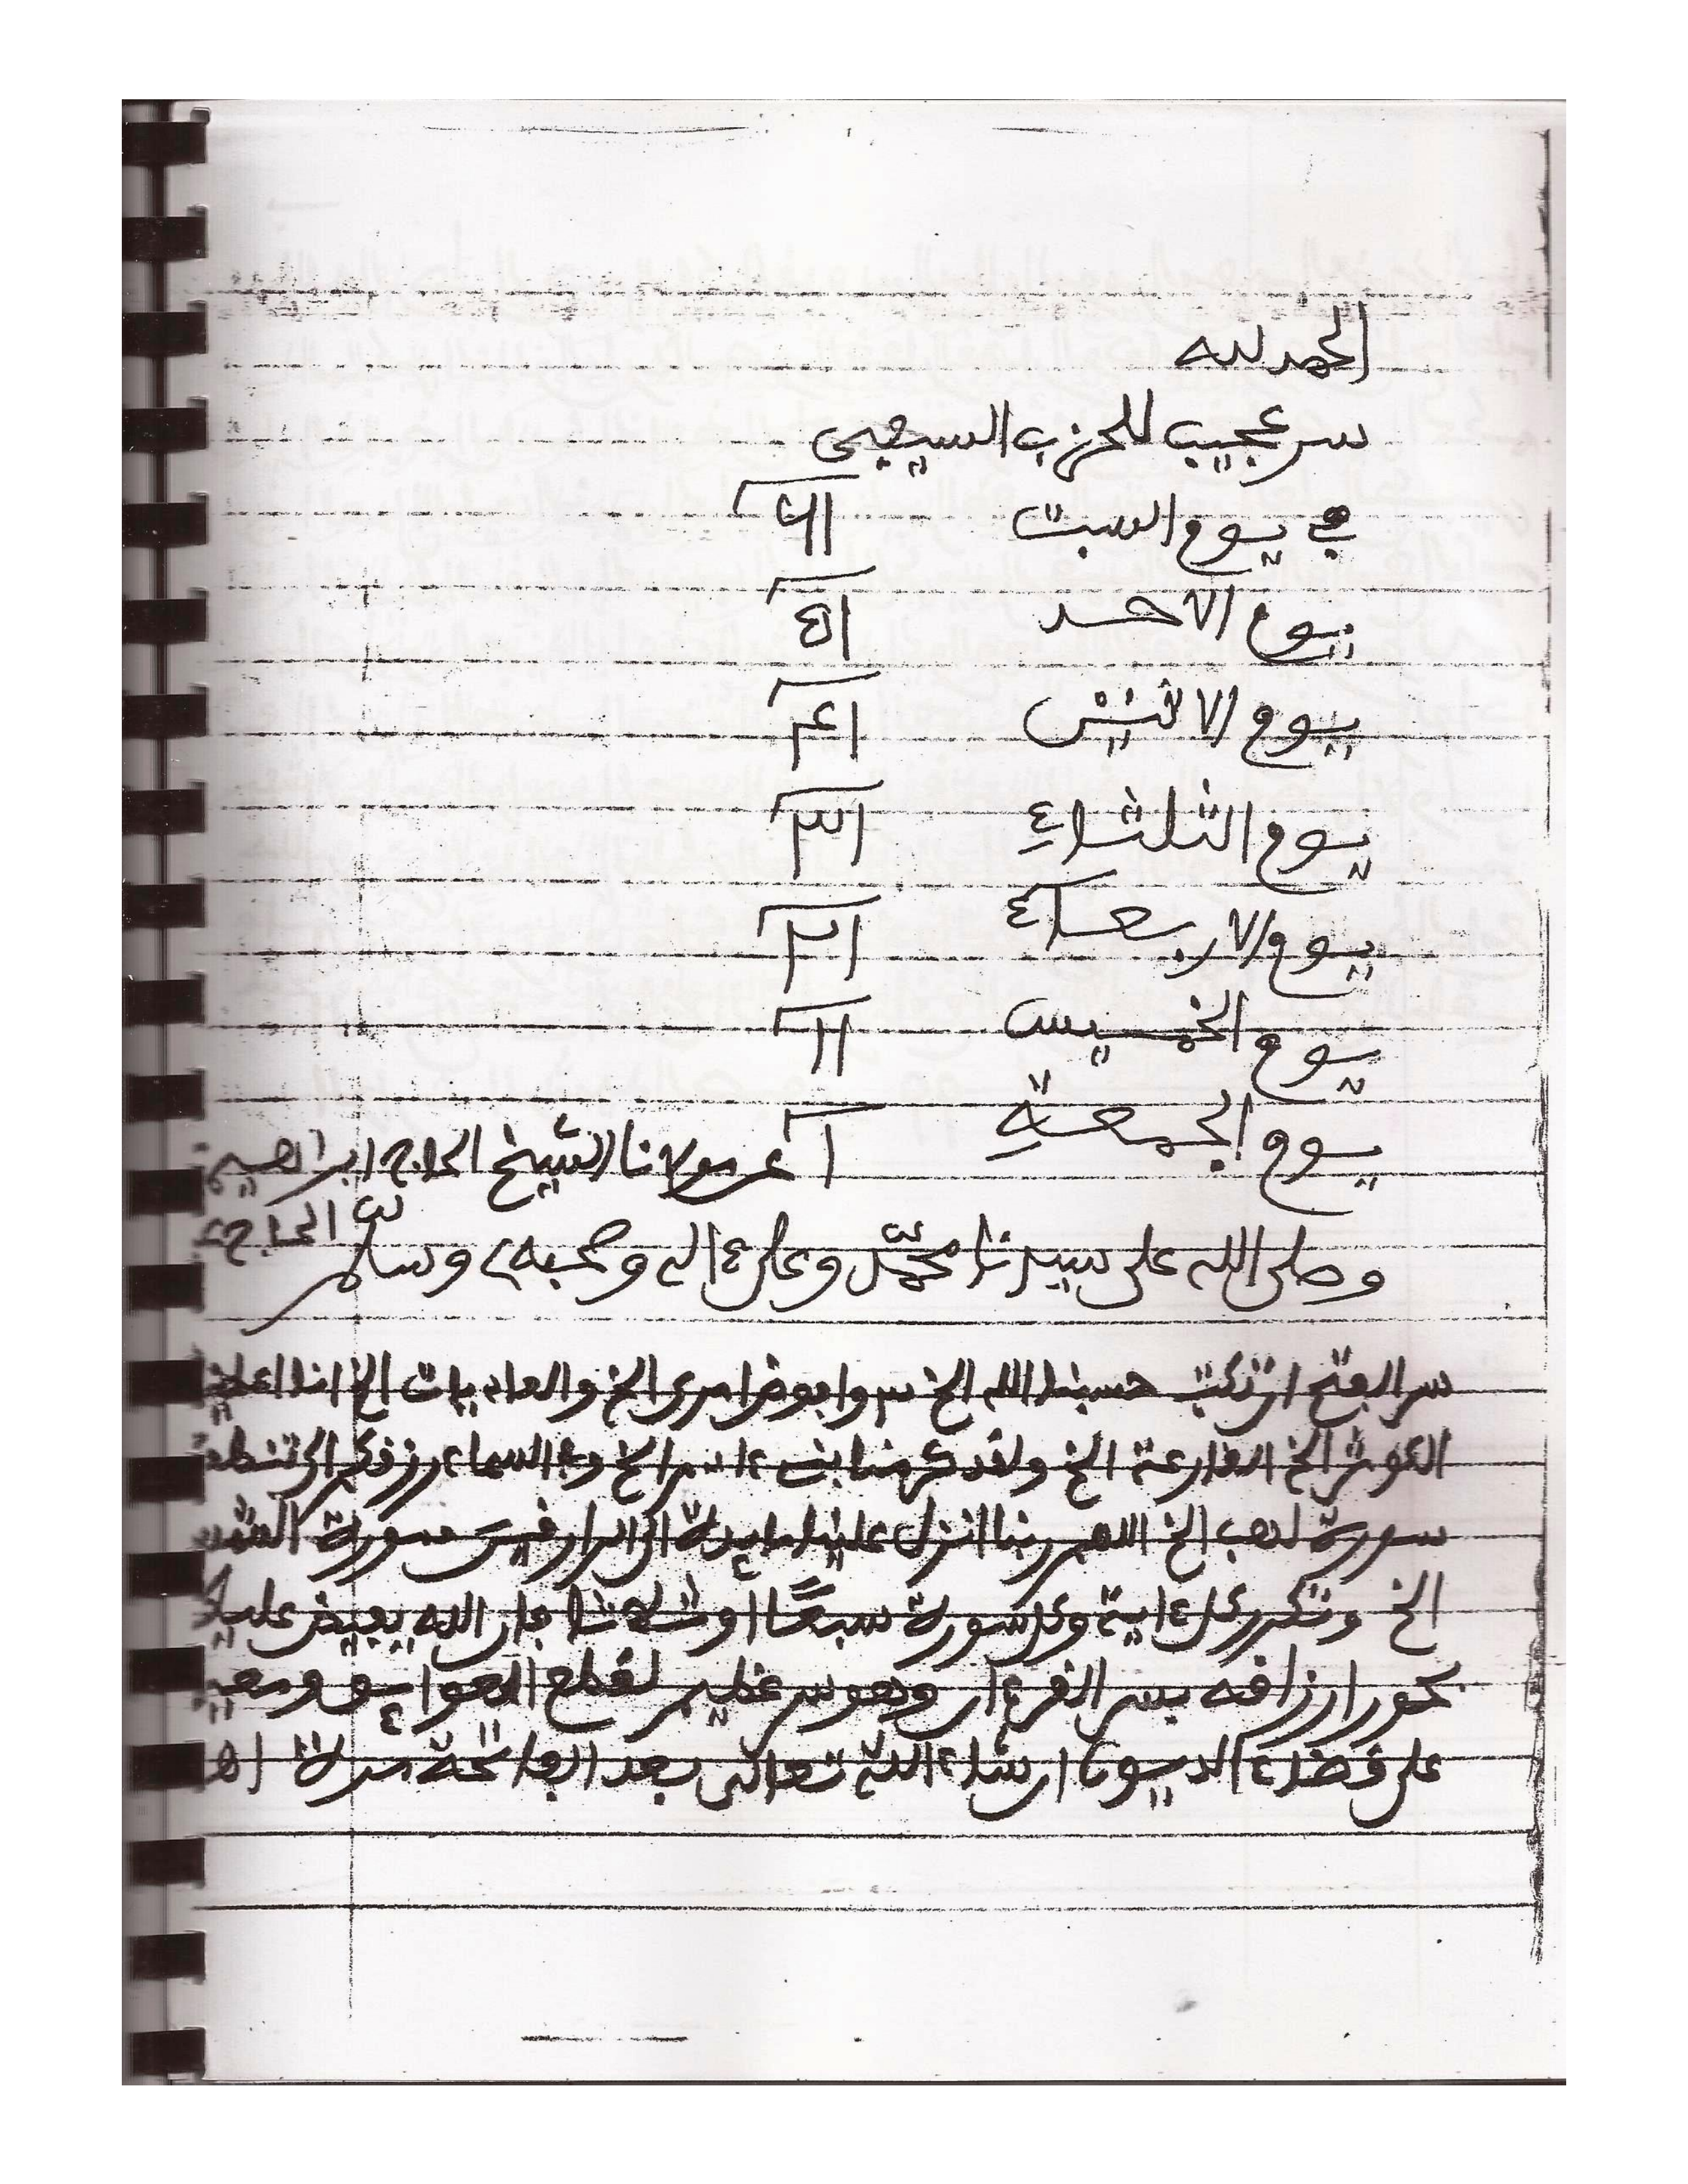 الحمد لله
سر عجيب للحزب السيفي
في يوم السبت ٤١
يوم الاحد ٥١
يوم الاثنين ١٤
يوم الثلثاء ١٣
يوم الاربعاء ١٢
يوم الخميس ١١
يوم الجمعة ١ عن مولانا الشيخ الحاج ابراهيم
الحاج
وصلى الله على سيدنا محمد وعلى ءاله وصحبه وسلم
سر الفتح ان تكتب حسبنا الله الخ وافوض امري الخ والعاديات الخ انا اعطينا
الكوثر الخ القارعة الخ ولقد كرمنا بني ءادم الخ وفي السماء رزقكم الى تنطقون
سورة لهب الخ اللهم ربنا انزل علينا مايدة الى الرازقين سورة
الخ وتكرر كل ءاية وكل سورة سبعا أو ثلاثا فان الله يفيض عليك
بحور ارزاقه بسر القرءان وهو سر عظيم لقطع العوايق ومعين
على قضاء الديون ان شاء الله تعالى بعد الفاتحة مرة اه